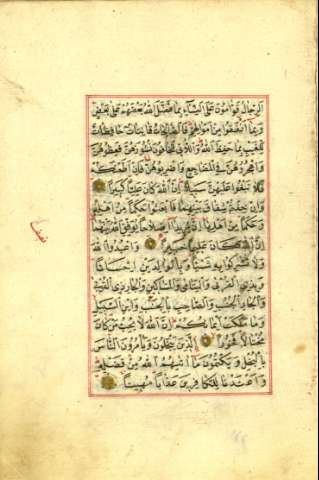 الرجال قوامون على النساء بما فضل الله بعضهم على بعض
وبما انفقوا من اموالهم فالصالحات قانتات حافظات
للغيب بما حفظ الله واللاتي تخافون نشوزهن فعظوهن
واهجروهن في المضاجع واضربوهن فان اطعنكم
فلا تبغوا عليهن سبيلا ان الله كان عليا كبيرا
وان خفتم شقاق بينهما فابعثوا حكما من اهله
وحكما من اهلها ان يريدا اصلاحا يوفق الله بينهما
ان الله كان عليما خبيرا واعبدوا الله
ولا تشركوا به شيئا وبالوالدين احسانا
وبذي القربى واليتامى والمساكين والجار ذي القربى
والجار الجنب والصاحب بالجنب وابن السبيل
وما ملكت ايمانكم ان الله لا يحب من كان
مختالا فخورا الذين يبخلون ويامرون الناس
بالبخل ويكتمون ما اتيهم الله من فضله
واعتدنا للكافرين عذابا مهينا